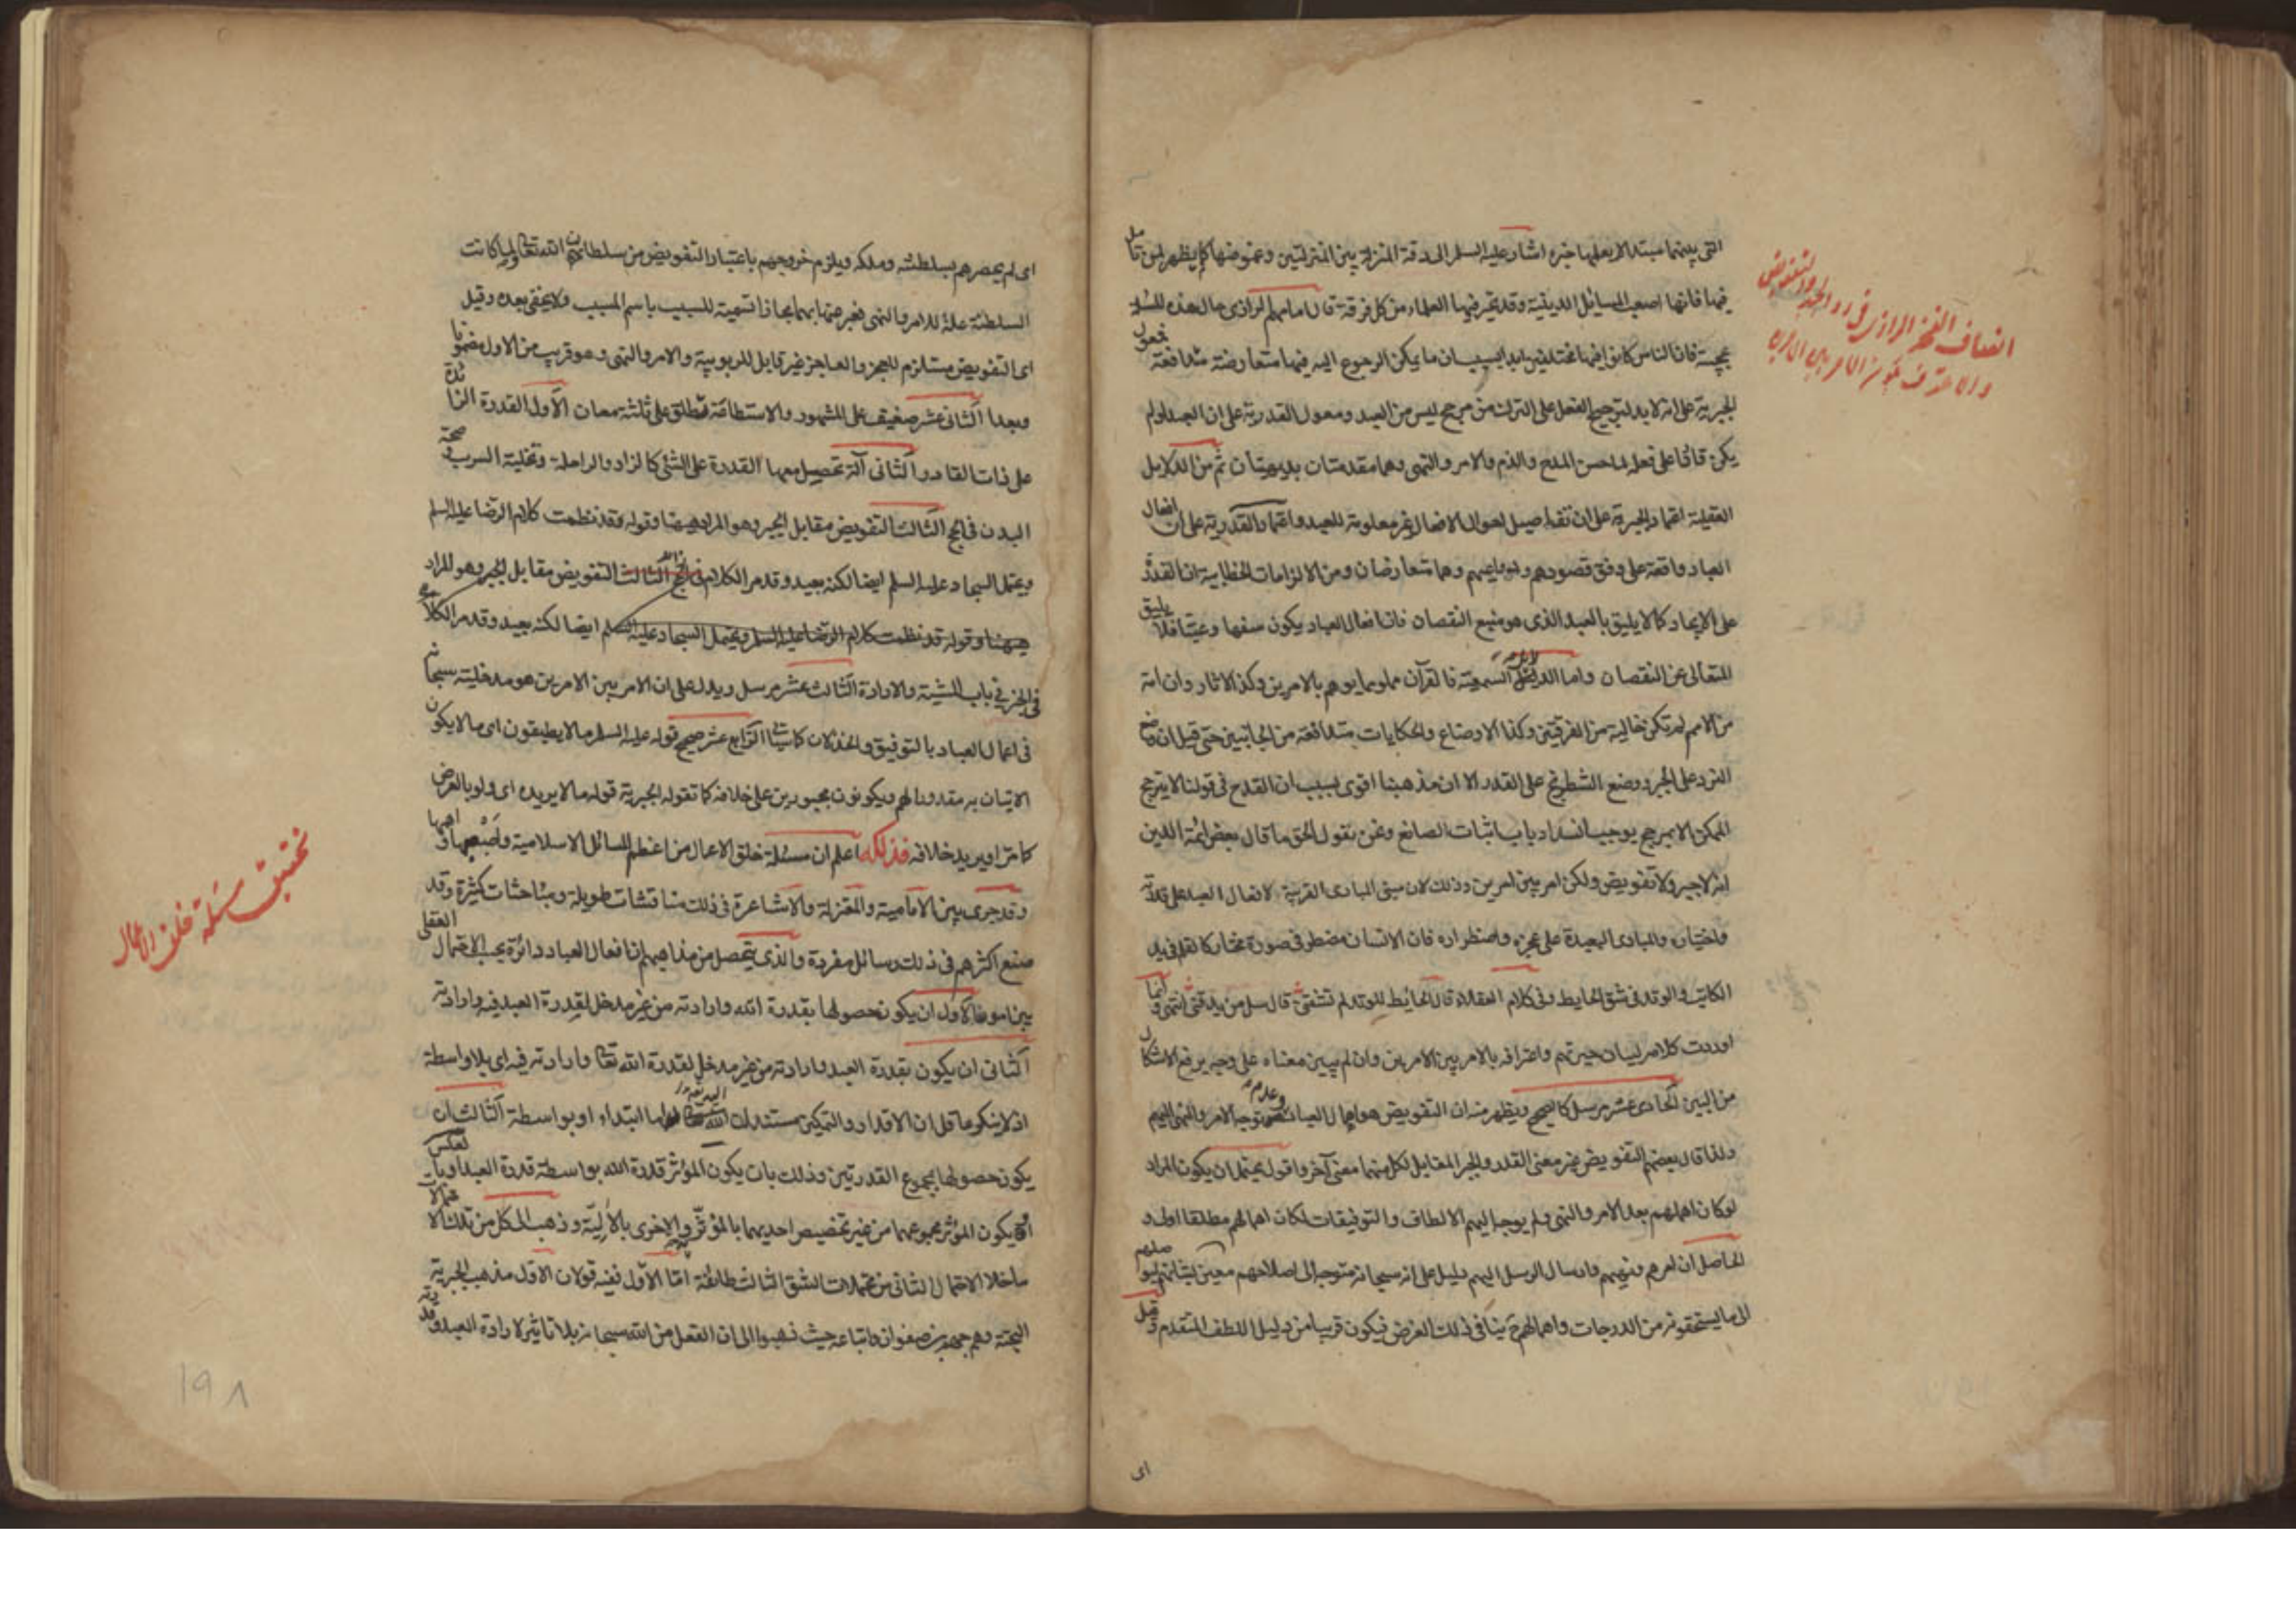 التى بينهما مبتدا لا يعلمها خبره اشار عليه السلم الى دقة المنزلة بين المنزلتين وغموضها كما يظهر لمن تامل
فيها فانها اصعب المسائل الدينية وقد تحير فيها العلماء من كل فرقة قال امامهم الرازى حال هذه المسئلة
عجيبة فان الناس كانوا فيها مختلفين ابدا بسبب ان ما يمكن الرجوع اليه فيها متعارضة متدافعة فمعول
الجبرية على انه لا بد لترجيح الفعل على الترك من مرجح ليس من العبد ومعول القدرية على ان العبد لو لم
يكن قادرا على فعله لما حسن المدح والذم والامر والنهى وهما مقدمتان بديهيتان ثم من الدلايل
العقلية اعتماد الجبرية على ان تفاصيل احوال الافعال غير معلومة للعبد واعتماد القدرية على ان افعال
العباد واقعة على وفق قصودهم ودواعيهم وهما متعارضان ومن الالزامات الخطابية ان القدرة
على الايجاد كمال لا يليق بالعبد الذى هو منبع النقصان فان افعال العباد يكون سفها وعبثا فلا يليق
المتعالى عن النقصان واما الدلايل السمعية فالقرآن مملو بما يوهم بالامرين وكذا الاثار وان امة
من الامم لم تكن خالية من الفرقتين وكذا الاوضاع والحكايات متدافعة من الجانبين حتى قيل ان وضع
النرد على الجبر ووضع الشطرنج على القدر الا ان مذهبنا اقوى بسبب ان القدح فى قولنا لا يترجح
الممكن الا بمرجح يوجب انسداد باب اثبات الصانع ونحن نقول الحق ما قال بعض ائمة الدين
انه لا جبر ولا تفويض ولكن امر بين امرين وذلك لان مبنى المبادى القريبة لافعال العبد على قدرته
واختياره والمبادى البعيدة على عجزه واضطراره فان الانسان مضطر فى صورة مختار كالقلم فى يد
الكاتب والوتد فى شق الحايط وفى كلام العقلاء قال الحائط للوتد لم تشقنى قال سل من يدقنى انتهى وانما
اوردت كلامه لبيان حيرتهم واعترافه بالامر بين الامرين وان لم يبين معناه على وجه يرفع الاشكال
من البين الحادى عشر مرسل كالصحيح ويظهر منه ان التفويض هو اهمال العباد وعدم توجه الامر والنهى اليهم
ولذا قال بعضهم التفويض غير معنى القدر والجبر المقابل لكل منهما معنى آخر واقول يحتمل ان يكون المراد
لو كان اهملهم بعد الامر والنهى ولم يوجه اليهم الالطاف والتوفيقات لكان اهمالهم مطلقا اولى و
الحاصل ان امرهم ونهيهم وارسال الرسل اليهم دليل على انه سبحانه متوجه الى اصلاحهم معين لشانهم ليوصلهم
الى ما يستحقونه من الدرجات واهمالهم ح ينافى ذلك الغرض فيكون قريبا من دليل اللطف المتقدم وقيل
اى
انصاف الفخر الرازى فى رد الجبر والتفويض
والاعتراف بكون الامر بين الامرين
اى لم يحصرهم بسلطنته وملكه ويلزم خروجهم باعتبار التفويض من سلطان الله تعالى ولما كانت
السلطنة علة للامر والنهى فعبر عنها بهما مجازا تسمية للسبب باسم المسبب ولا يخفى بعده وقيل
اى التفويض مستلزم للعجز والعاجز غير قابل للربوبية والامر والنهى وهو قريب من الاول مضمونا
وبعدا الثانى عشر ضعيف على المشهور والاستطاعة تطلق على ثلثة معان الاول القدرة الزائدة
على ذات القادر الثانى آلة تحصيل معها القدرة على الشئ كالزاد والراحلة وتخلية السرب وصحة
البدن فى الحج الثالث التفويض مقابل الجبر وهو المراد ههنا وقوله وقد نظمت كلام الرضا عليه السلم
ويحتمل السجاد عليه السلم ايضا لكنه بعيد وقد مر الكلام فى الحج الثالث التفويض مقابل الجبر وهو المراد
ههنا وقوله قد نظمت كلام الرضا عليه السلم ويحتمل السجاد عليه السلم ايضا لكنه بعيد وقد مر الكلام
فى الخبر فى باب المشية والارادة الثالث عشر مرسل ويدل على ان الامر بين الامرين هو مدخليته سبحانه
فى اعمال العباد بالتوفيق والخذلان كما سياتى الرابع عشر صحيح قوله عليه السلم ما لا يطيقون اى ما لا يكون
الاتيان به مقدورا لهم ويكونون مجبورين على خلافه كما تقوله الجبرية قوله ما لا يريده اى ولو بالعرض
كما مر او يريد خلافه فذلكه اعلم ان مسئلة خلق الاعمال من اعظم المسائل الاسلامية واصعبها واهمها
وقد جرى بين الامامية والمعتزلة والاشاعرة فى ذلك مناقشات طويلة ومباحثات كثيرة وقد
صنع اكثرهم فى ذلك رسائل مفردة والذى يتحصل من مذاهبهم ان افعال العباد دائرة بحسب الاحتمال العقلى
بين امور الاول ان يكون حصولها بقدرة الله وارادته من غير مدخل لقدرة العبد فيه وارادته
الثانى ان يكون بقدرة العبد وارادته من غير مدخل لقدرة الله تعالى وارادته فيه اى بلا واسطة
اذ لا ينكر عاقل ان الاقدار والتمكين مستندان اليه تعالى اما ابتداء او بواسطة الثالث ان
يكون حصولها بمجموع القدرتين وذلك بان يكون المؤثر قدرة الله بواسطة قدرة العبد او بالعكس
او يكون المؤثر مجموعهما من غير تخصيص احديهما بالمؤثرية والاخرى بالآلية وذهب الى كل من تلك الاحتمالات
ما خلا الاحتمال الثانى من محتملات الشق الثالث طائفة اما الاول ففيه قولان الاول مذهب الجبرية
البحتة وهم جهم بن صفوان واتباعه حيث ذهبوا الى ان الفعل من الله سبحانه بلا تاثير لارادة العبد وقدرته
تحقيق مسئلة خلق الاعمال
198